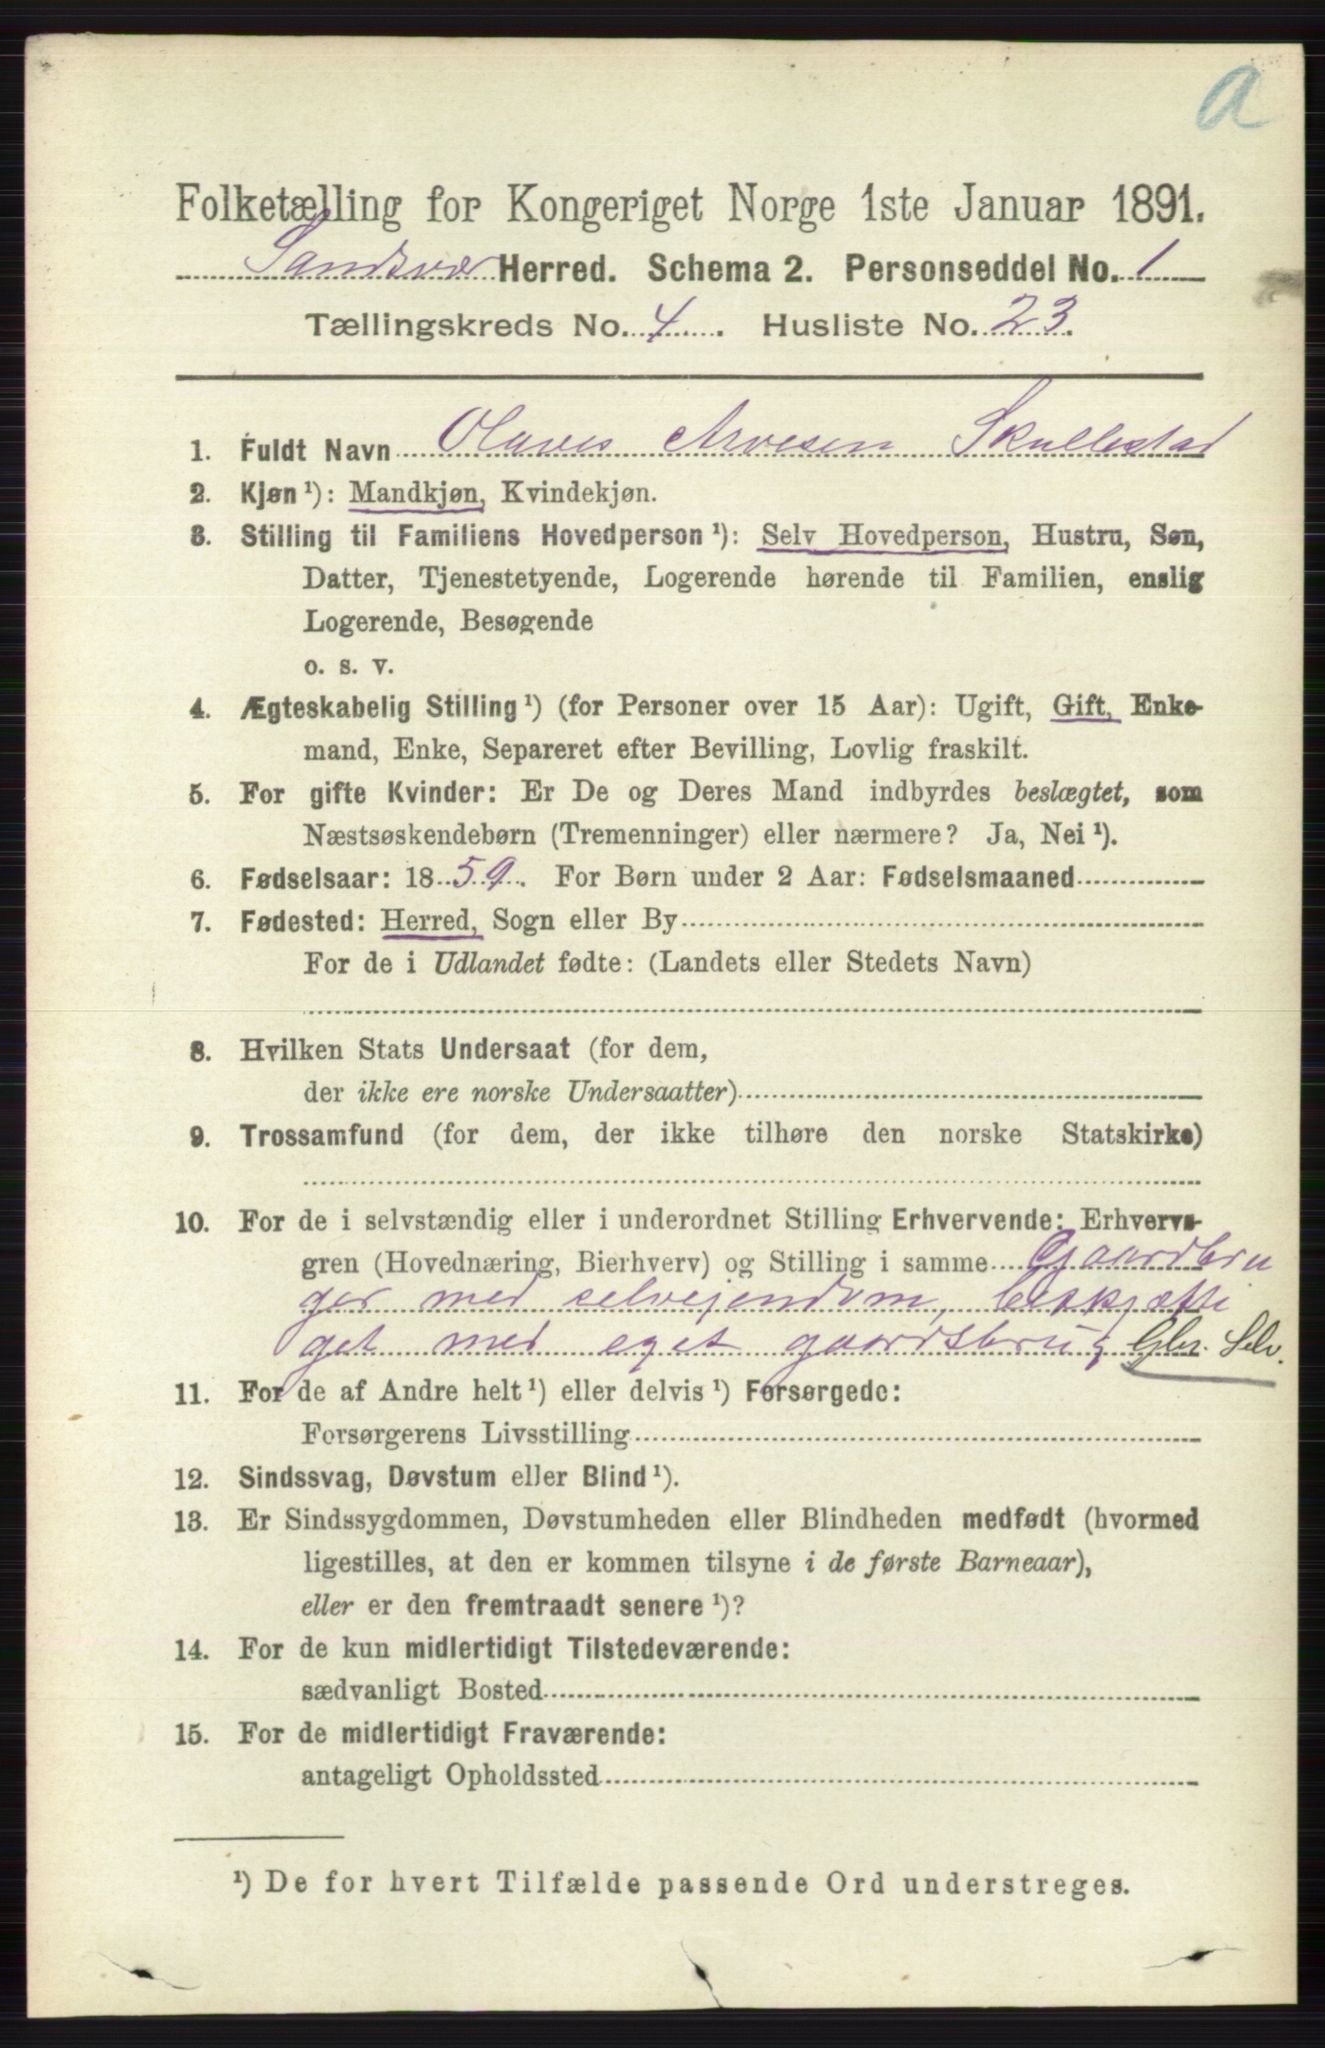 a
Folketælling for Kongeriget Norge 1ste Januar 1891.
Sandsvær Herred. Schema 2. Personseddel No. 1
Tællingskreds No. 4. Husliste No. 23.
1. Fuldt Navn Olaves Arvesen Skullestad
2. Kjøn ¹): Mandkjøn, Kvindekjøn.
3. Stilling til Familiens Hovedperson ¹): Selv Hovedperson, Hustru, Søn,
Datter, Tjenestetyende, Logerende hørende til Familien, enslig
Logerende, Besøgende
o. s. v.
4. Ægteskabelig Stilling ¹) (for Personer over 15 Aar): Ugift, Gift, Enke-
mand, Enke, Separeret efter Bevilling, Lovlig fraskilt.
5. For gifte Kvinder: Er De og Deres Mand indbyrdes beslægtet, som
Næstsøskendebørn (Tremenninger) eller nærmere? Ja, Nei ¹).
6. Fødselsaar: 1859. For Børn under 2 Aar: Fødselsmaaned
7. Fødested: Herred, Sogn eller By
For de i Udlandet fødte: (Landets eller Stedets Navn)
8. Hvilken Stats Undersaat (for dem,
der ikke ere norske Undersaatter)
9. Trossamfund (for dem, der ikke tilhøre den norske Statskirke)
10. For de i selvstændig eller i underordnet Stilling Erhvervende: Erhvervs-
gren (Hovednæring, Bierhverv) og Stilling i samme Gaardbru
ger med selvejendom, beskjæfti
get med eget gaardsbrug Gbr. Selv.
11. For de af Andre helt ¹) eller delvis ¹) Forsørgede:
Forsørgerens Livsstilling
12. Sindssvag, Døvstum eller Blind ¹).
13. Er Sindssygdommen, Døvstumheden eller Blindheden medfødt (hvormed
ligestilles, at den er kommen tilsyne i de første Barneaar),
eller er den fremtraadt senere ¹)?
14. For de kun midlertidigt Tilstedeværende:
sædvanligt Bosted
15. For de midlertidigt Fraværende:
antageligt Opholdssted
¹) De for hvert Tilfælde passende Ord understreges.